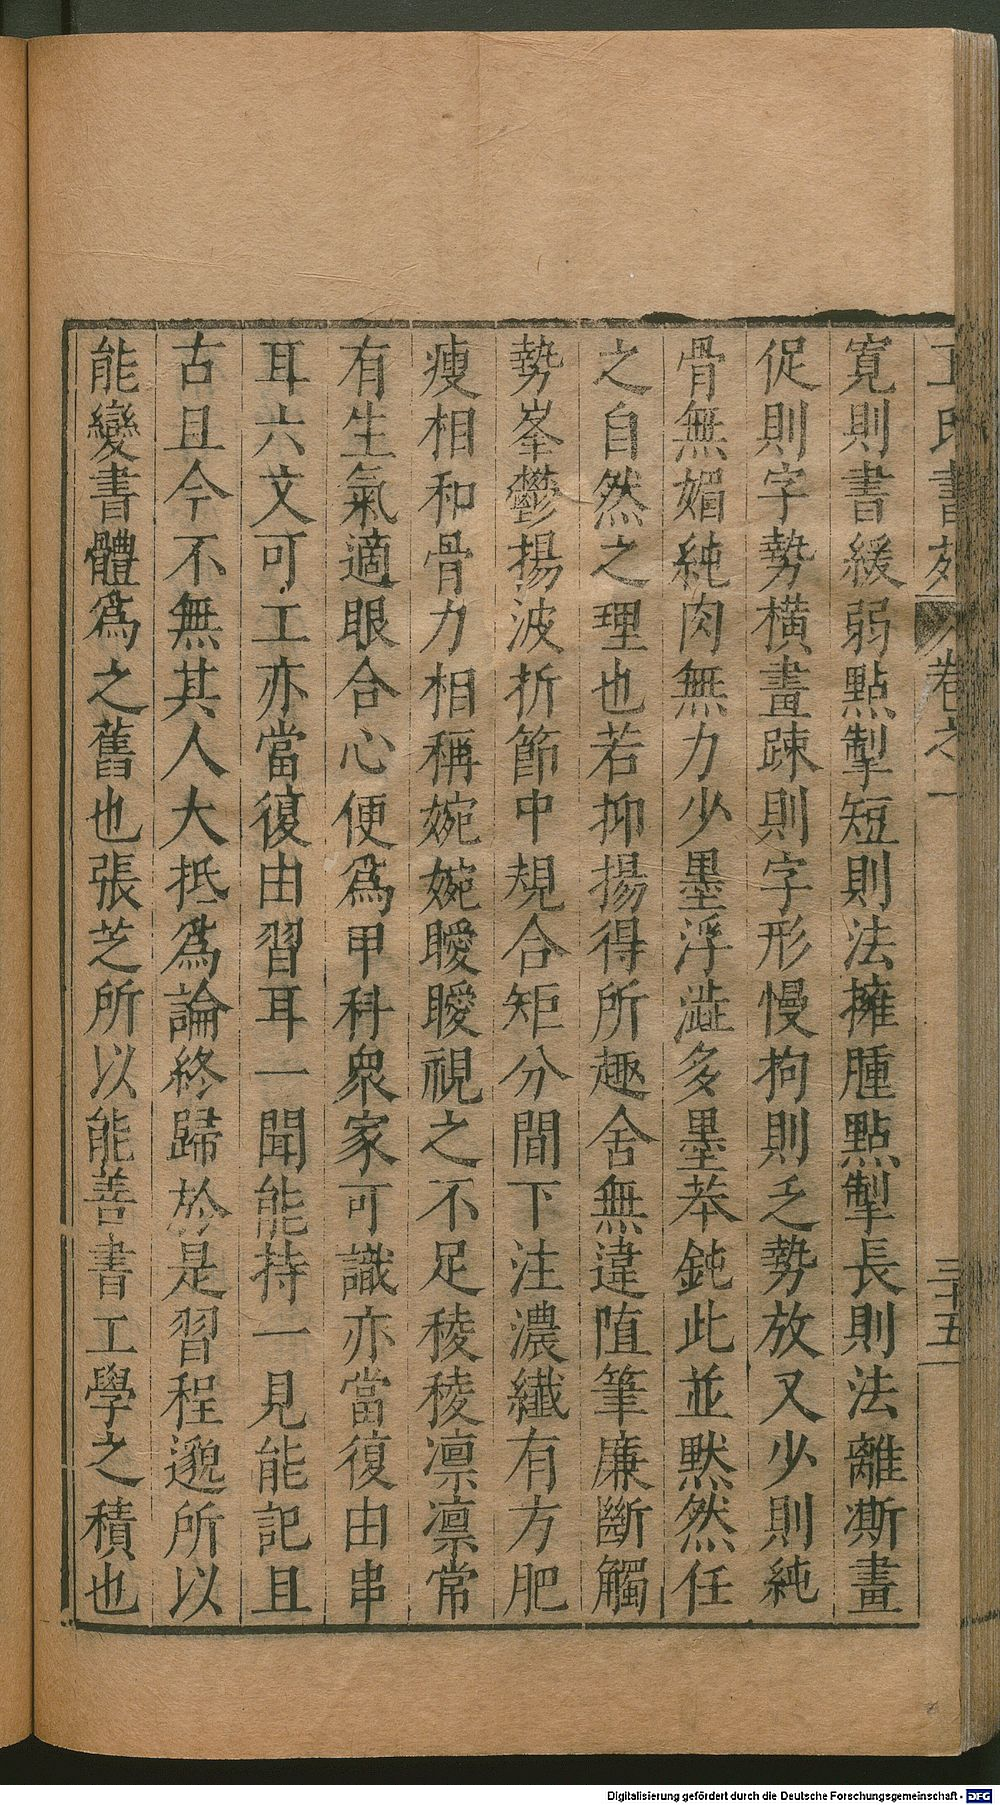 王氏書苑 卷之一 三十五
寛則書緩弱點掣短則法擁腫點掣長則法離澌畫
促則字勢横畫踈則字形慢拘則乏勢放又少則純
骨無媚純肉無力少墨浮澁多墨莾鈍此並黙然任
之自然之理也若抑揚得所趣舍無違值筆廉斷觸
勢峯鬱揚波折節中規合矩分間下注濃纖有方肥
瘦相和骨力相稱婉婉曖曖視之不足稜稜凛凛常
有生氣適眼合心便爲甲科衆家可識亦當復由串
耳六文可工亦當復由習耳一聞能持一見能記且
古且今不無其人大抵爲論終歸於是習程邈所以
能變書體爲之舊也張芝所以能善書工學之積也
Digitalisierung gefördert durch die Deutsche Forschungsgemeinschaft - DFG